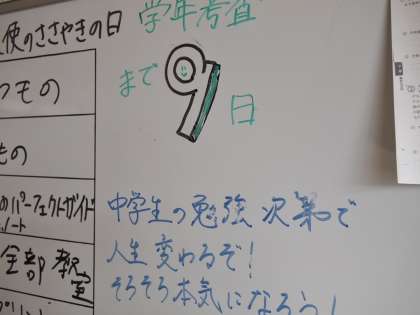 使のささやきの日
学年考査
まで
9
日
つもの
もの
パーフェクトガイド
ノート
全部 教室
中学生の勉強次第で
人生変わるぞ!
そろそろ本気になろう!